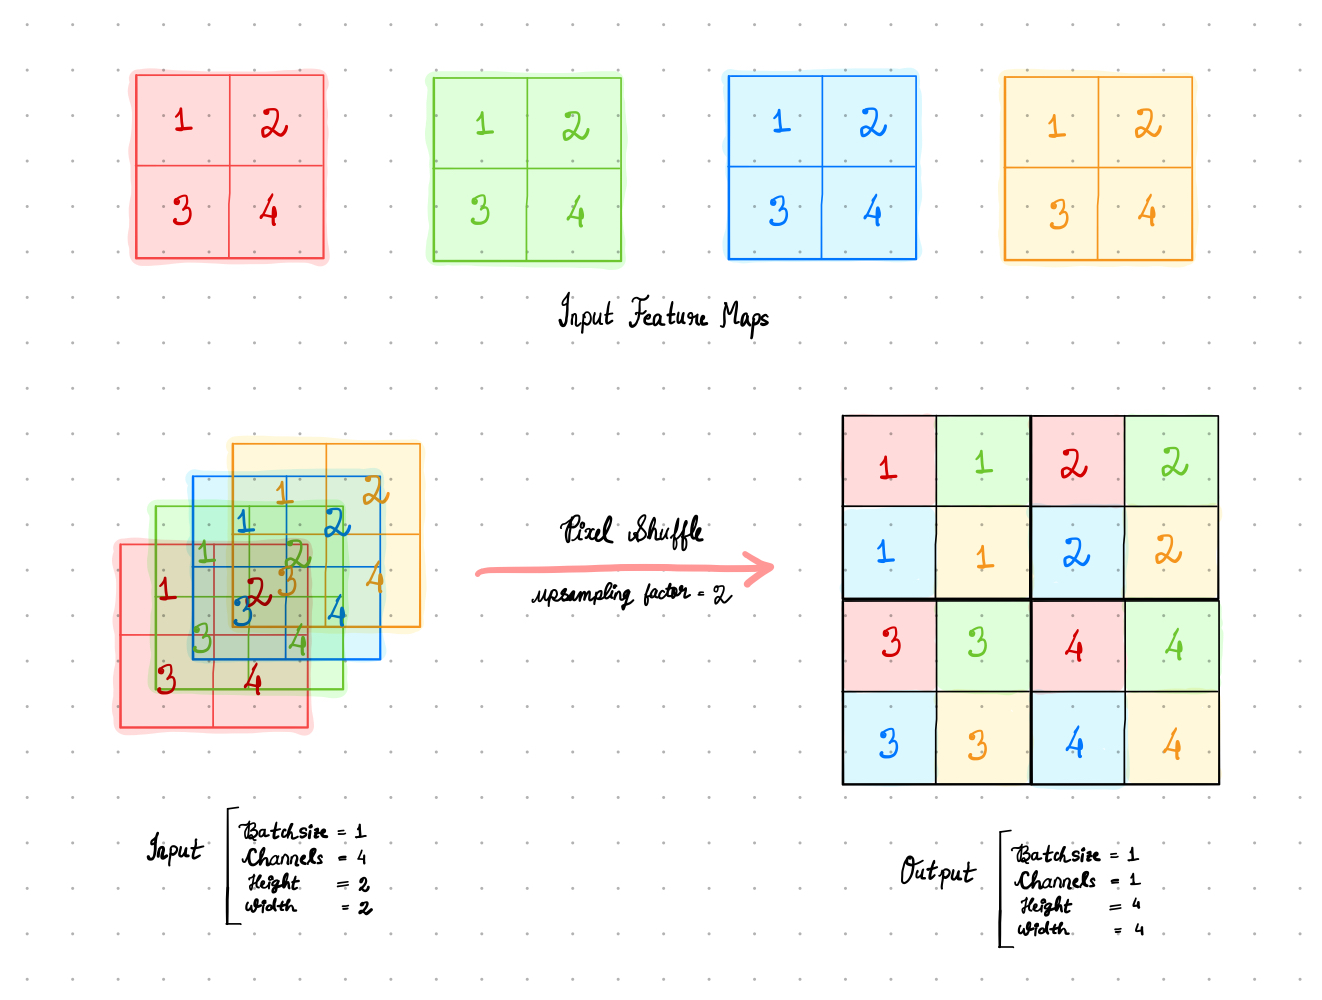 1 2 1 2 1 2 1 2
3 4 3 4 3 4 3 4
Input Feature Maps
1 2
1 2
1 2
1 2
3 4
3 4
3 4
3 4
Pixel Shuffle
upsampling factor = 2
1 1 2 2
1 1 2 2
3 3 4 4
3 3 4 4
Input
Batchsize = 1
Channels = 4
Height = 2
Width = 2
Output
Batchsize = 1
Channels = 1
Height = 4
Width = 4